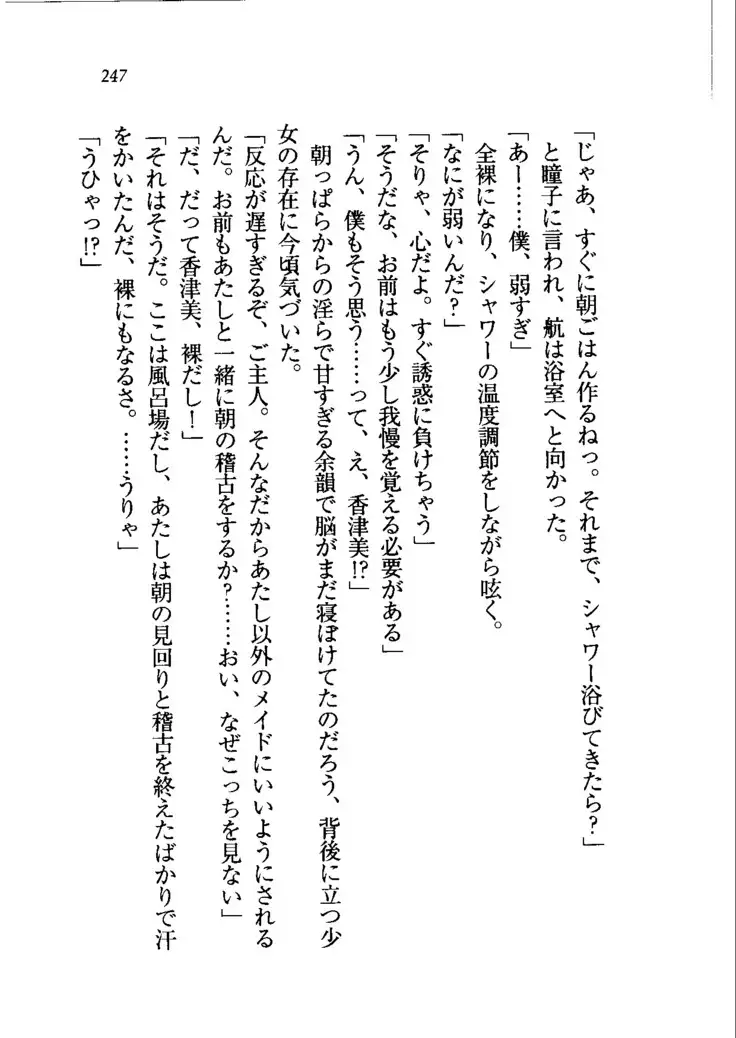 247
「じゃあ、すぐに朝ごはん作るねっ。それまで、シャワー浴びてきたら?」
と瞳子に言われ、航は浴室へと向かった。
「あー……僕、弱すぎ」
全裸になり、シャワーの温度調節をしながら呟く。
「なにが弱いんだ?」
「そりゃ、心だよ。すぐ誘惑に負けちゃう」
「そうだな、お前はもう少し我慢を覚える必要がある」
「うん、僕もそう思う……って、え、香津美!?」
朝っぱらからの淫らで甘すぎる余韻で脳がまだ寝ぼけてたのだろう、背後に立つ少
女の存在に今頃気づいた。
「反応が遅すぎるぞ、ご主人。そんなだからあたし以外のメイドにいいようにされる
んだ。お前もあたしと一緒に朝の稽古をするか?……おい、なぜこっちを見ない」
「だ、だって香津美、裸だし!」
「それはそうだ。ここは風呂場だし、あたしは朝の見回りと稽古を終えたばかりで汗
をかいたんだ、裸にもなるさ。……うりゃ」
「うひゃっ!?」